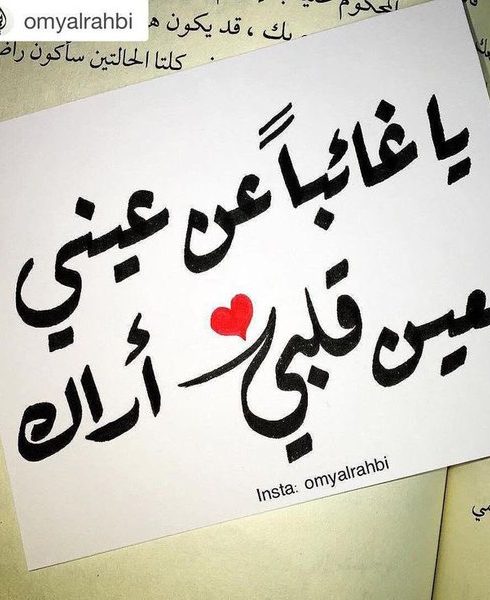 omyalrahbi
المحكوم
بك ، قد يكون
كلتا الحالتين سأكون
يا غائباً عن عيني
عين قلبي أراك
Insta: omyalrahbi